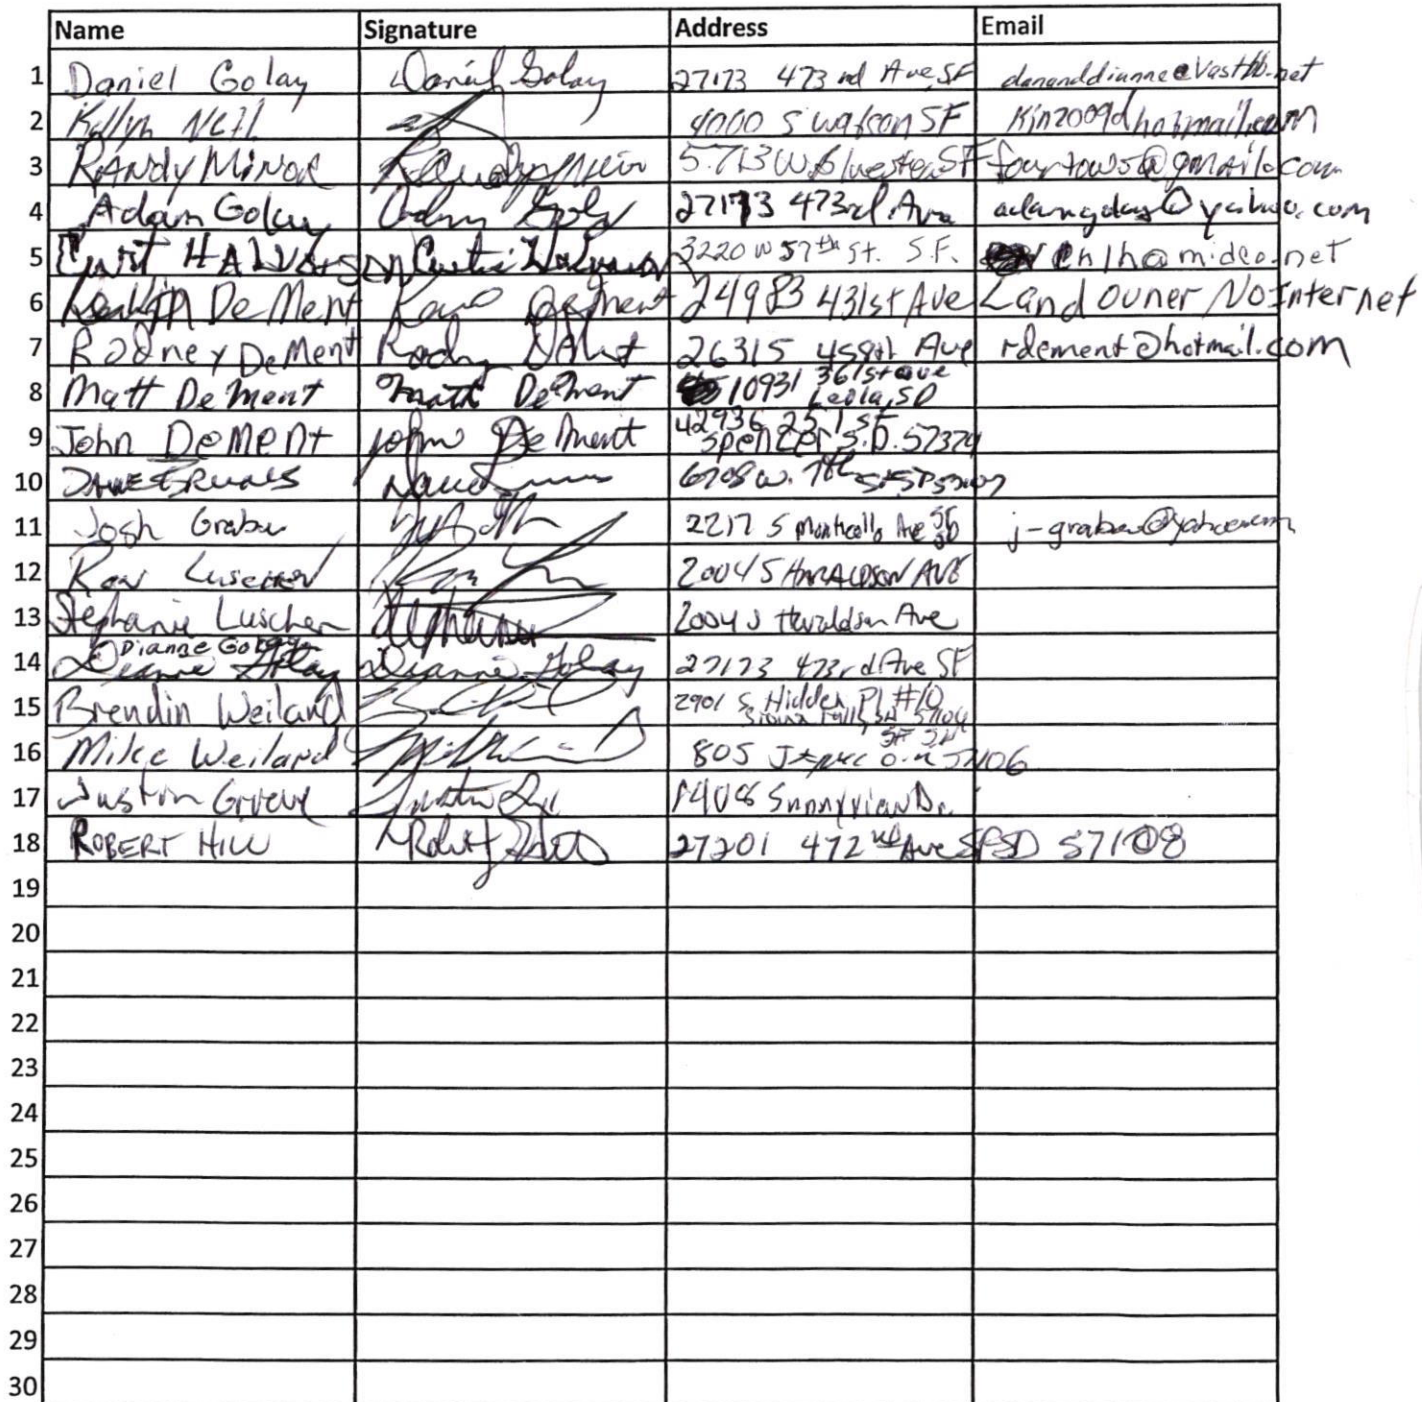 Name Signature Address Email
1 Daniel Golay Daniel Golay 27173 473rd Ave, SF dananddianne@vastbb.net
2 4000 S Watson SF Kjn2009@hotmail.com
3 RANDY MINOR 5713 W. SF fourtows@gmail.com
4 Adam Golay Adam Golay 27173 473rd Ave adamgolay@yahoo.com
5 Curt HALVORSON Curtis Halvorson 3220 W 57th St. S.F. ch1h@midco.net
6 DeMent DeMent 24983 431st Ave Land owner No Internet
7 Rodney DeMent 26315 458th Ave rdement@hotmail.com
8 Matt DeMent Matt DeMent 10931 361st ave
Leola, SD
9 John DeMent John DeMent 42936 251 st
Spencer S.D. 57374
10 6708 W. 7th
11 Josh Graber 2217 S Monticello Ave SF
SD j-graber@yahoo.com
12 2004 S HARALDSON AVE
13 Stephanie Luscher 2004 S Haraldson Ave
14 Dianne Golay
Dianne Golay Dianne Golay 27173 473rd Ave SF
15 Brendin Weiland 2901 S. Hidden Pl #10
Sioux Falls, SD 57104
16 Mike Weiland SF SD
805
17 Justin Justin Sunnyview Dr.
18 ROBERT HILL 27201 472nd Ave SF SD 57108
19
20
21
22
23
24
25
26
27
28
29
30